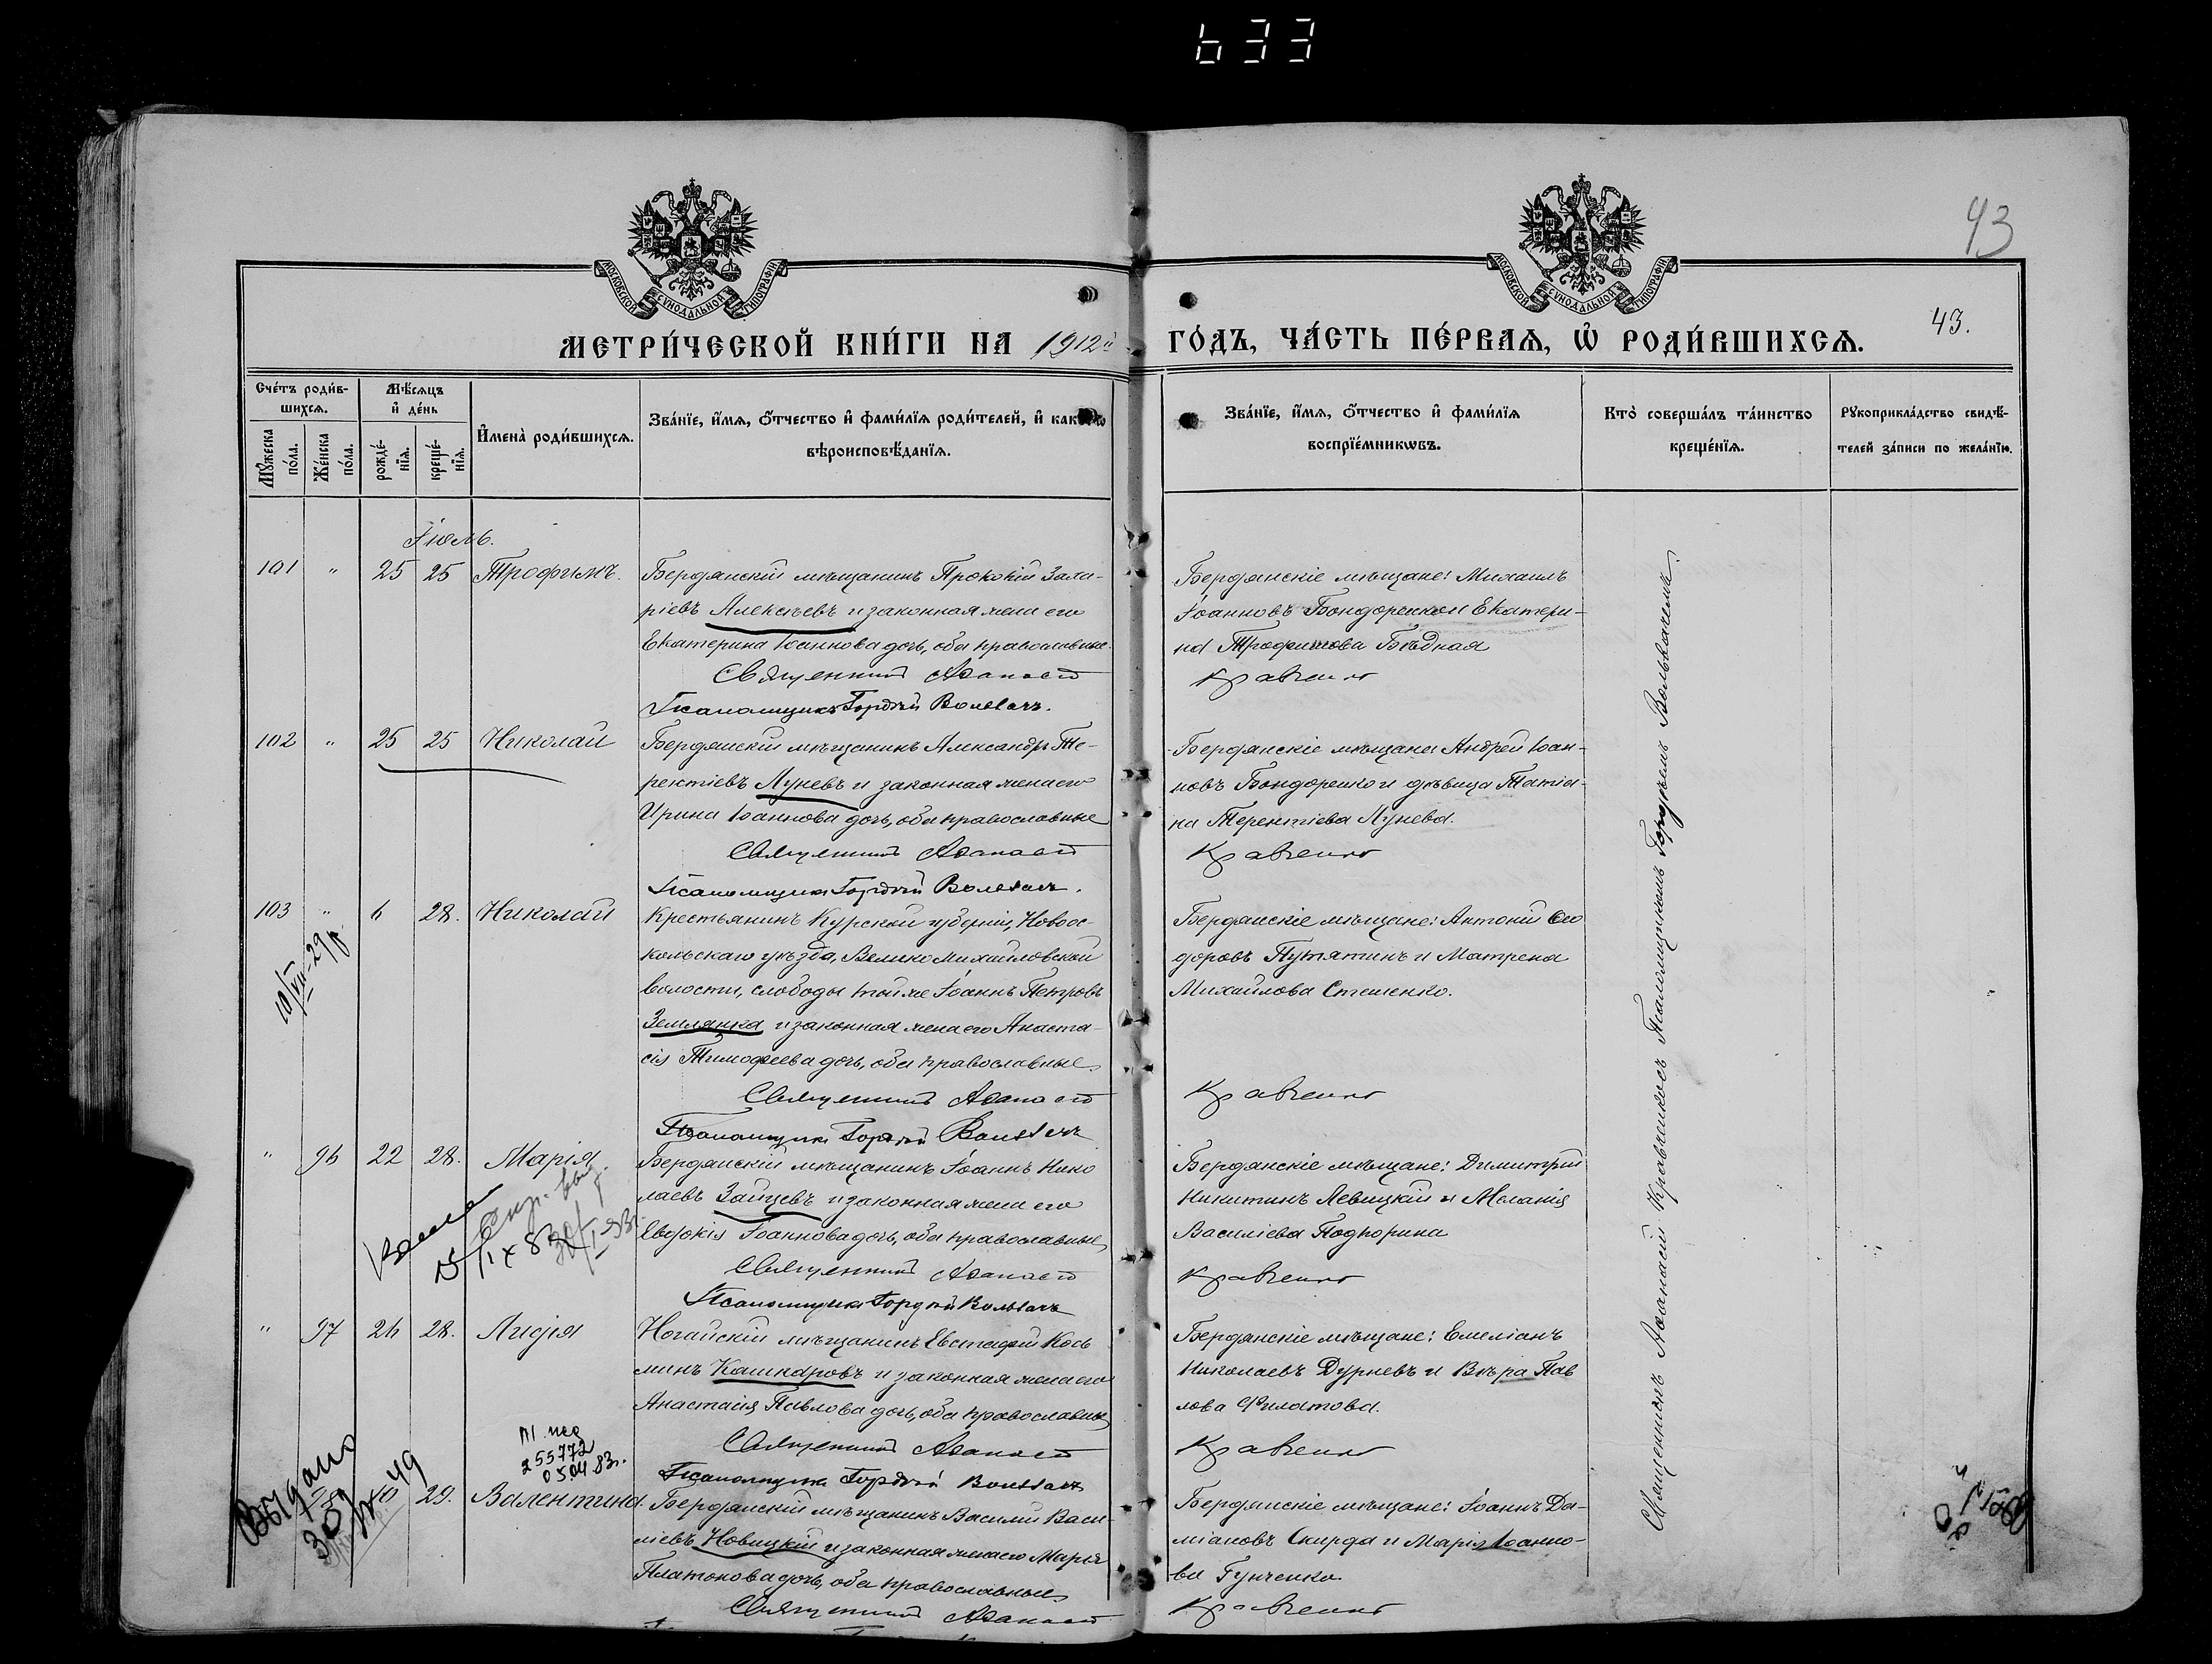 633
43
МОСКОВСКОЙ СУНОДАЛЬНОЙ ТИПОГРАФІИ
МОСКОВСКОЙ СУНОДАЛЬНОЙ ТИПОГРАФІИ
МЕТРИ́ЧЕСКОЙ КНИ́ГИ НА 1912й ГО́ДЪ, ЧА́СТЬ ПЕ́РВАѦ, Ѡ РОДИ́ВШИХСѦ.
43.
Сче́тъ роди́в-
шихсѧ.
Мꙋ́жеска по́ла.
Же́нска по́ла.
Мѣ́сѧцъ
и҆ де́нь
рожде́-
нїѧ.
креще́-
нїѧ.
И҆мена̀ роди́вшихсѧ.
Зва́нїе, и҆́мѧ, ѻ҆́тчество и҆ фами́лїѧ роди́телей, и҆
вѣроисповѣ́данїѧ.
Зва́нїе, и҆́мѧ, ѻ҆́тчество и҆ фами́лїѧ
воспрїе́мникѡвъ.
Кто̀ соверша́лъ та́инство
креще́нїѧ.
Рꙋкоприкла́дство свидѣ́-
телей за́писи по жела́нїю.
Іюль.
101 " 25 25 Трофимъ.
Бердянскій мѣщанинъ Прокопій Заха-
ріевъ Алексѣевъ и законная жена его
Екатерина Іоаннова дочь, оба православные.
Священникъ Аѳанасій
Псаломщикъ Гордѣй Волвачъ.
Бердянскіе мѣщане: Михаилъ
Іоанновъ Бондаренко и Екатери-
на Трофимова Бѣдная
Кравченко
102 " 25 25 Николай
Бердянскій мѣщанинъ Александръ Те-
рентіевъ Луневъ и законная жена его
Ирина Іоаннова дочь, оба православные
Священникъ Аѳанасій
Псаломщикъ Гордѣй Волвачъ.
Бердянскіе мѣщане Андрей Іоан-
новъ Бондаренко и дѣвица Татіа-
на Терентіева Лунева.
Кравченко
103 " 6 28. Николай
10/VII-29 г.
Крестьянинъ Курской губерніи, Новоос-
кольскаго уѣзда, Велико Михайловской
волости, слободы той же Іоаннъ Петровъ
Землянка и законная жена его Анаста-
сія Тимофеева дочь, оба православные.
Священникъ Аѳанасій
Псаломщикъ Гордѣй Волвачъ
Бердянскіе мѣщане: Антоній Ѳео
доровъ Путятинъ и Матрена
Михайлова Стешенко.
Кравченко
" 96 22 28. Марія
Бердянскій мѣщанинъ Іоаннъ Нико
лаевъ Зайцевъ и законная жена его
Евдокія Іоаннова дочь, оба православные
Священникъ Аѳанасій
Псаломщикъ Гордѣй Волвачъ
Бердянскіе мѣщане: Димитрій
Никитинъ Левицкій и Меланія
Василіева Подпорина
Кравченко
" 97 26 28. Лидія
Ногайскій мѣщанинъ Евстафій Кось
минъ Кашкаровъ и законная жена его
Анастасія Павлова дочь, оба православные
Священникъ Аѳанасій
Псаломщикъ Гордѣй Волвачъ
Бердянскіе мѣщане: Емеліанъ
Николаевъ Дурневъ и Вѣра Пав
лова Филатова.
Кравченко
255772
05.04 83г.
Выдано
29. Валентина.
Бердянскій мѣщанинъ Василій Васи-
ліевъ Новицкій и законная жена его Марія
Платонова дочь, оба православные
Священникъ Аѳанасій
Бердянскіе мѣщане: Іоаннъ Да-
міановъ Скирда и Марія Іоанно-
ва Гунченко.
Кравченко
Священникъ Аѳанасій Кравченко съ Псаломщикомъ Гордѣемъ Волвачемъ.